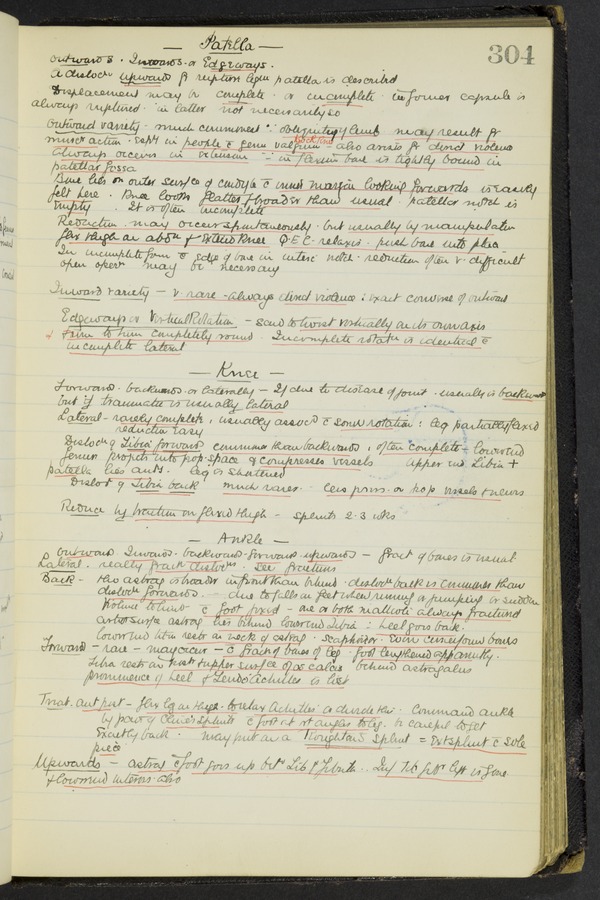 304
— Patella —
outwards. Inwards or Edgeways.
A dislocn upward fr rupture ligm patella is described
Displacement may be complete or incomplete in former capsule is
always ruptured in latter not necessarily so
Outward variety much commonest ∵ obliquity of limb may result fr
musr action espy in people c genu valgum - also arises fr direct violence
knock knee
always occurs in extension in flexion bone is tightly bound in
patellar fossa
Bone lies on outer surface of condyle c inner margin looking forwards is easily
felt here. Knee looks flatter & broader than usual patellar notch is
empty. It is often incomplete
Reduction. may occur spontaneously but usually by manipulation
flex thigh on abdn & extend knee Q.E.C. relaxes push bone into place
In incomplete form c edge of bone in interc notch reduction often v. difficult
open opern may be necessary
Inward variety — v rare - always direct violence: exact converse of outward
Edgeways or Vertical Rotation — said to twist vertically on its own axis
& even to turn completely round. Incomplete rotatn is identical c
incomplete lateral
— Knee —
Forward. backwards or laterally — If due to disease of joint usually is backward
but if traumatic is usually lateral
Lateral - rarely complete, usually assocd c some rotation: leg partially flexed
reduction easy
Dislocn of Tibia forward commoner than backwards, often complete - lower end
femur projects into pop. space & compresses vessels upper end Tibia +
patella lies antr. leg is shortened
Dislocn of Tibia back much rarer. less press. on pop vessels & nerves
Reduce by traction on flexed thigh - splints 2-3 wks
— Ankle —
outward Inward. backward forward upwards — fract of bones is usual
Lateral. really fract dislocns. See fractures
Back - tho astrag is broader in front than behind dislocn back is commoner than
dislocn forwards. — due to falls on feet when running or jumping or sudden
violence to limb c foot fixed - one or both malleoli always fractured
artic surface astrag lies behind lower end tibia: heel goes back.
lower end tibia rests on neck of astrag. scaphoid or even cuneiform bones
Forward — rare - may occur - c fract of bones of leg foot lengthened apparently.
Tibia rests on post upper surface of os calcis behind astragalus
prominence of heel & Tendo Achilles is lost
Treat. ant post - flex leg on thigh to relax Achilles or divide this. Command ankle
by pair of Cline's splints c foot at rt angles to leg. be careful to get
exactly back. may put on a Houghton's splint = Ext splint c sole
piece
Upwards — astrag c foot goes up betn Tib & fibula. Inf Tib fibr ligt is gone
& lower end interos also